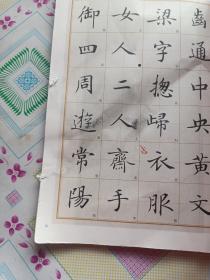 齒通中央黃文
梁字摠歸衣服
女人二人齊手
御四周遊常陽